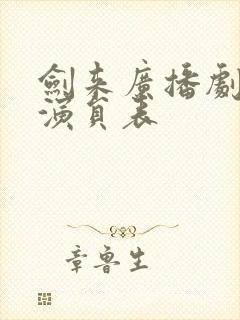 劍来廣播劇
演員表
章魯生